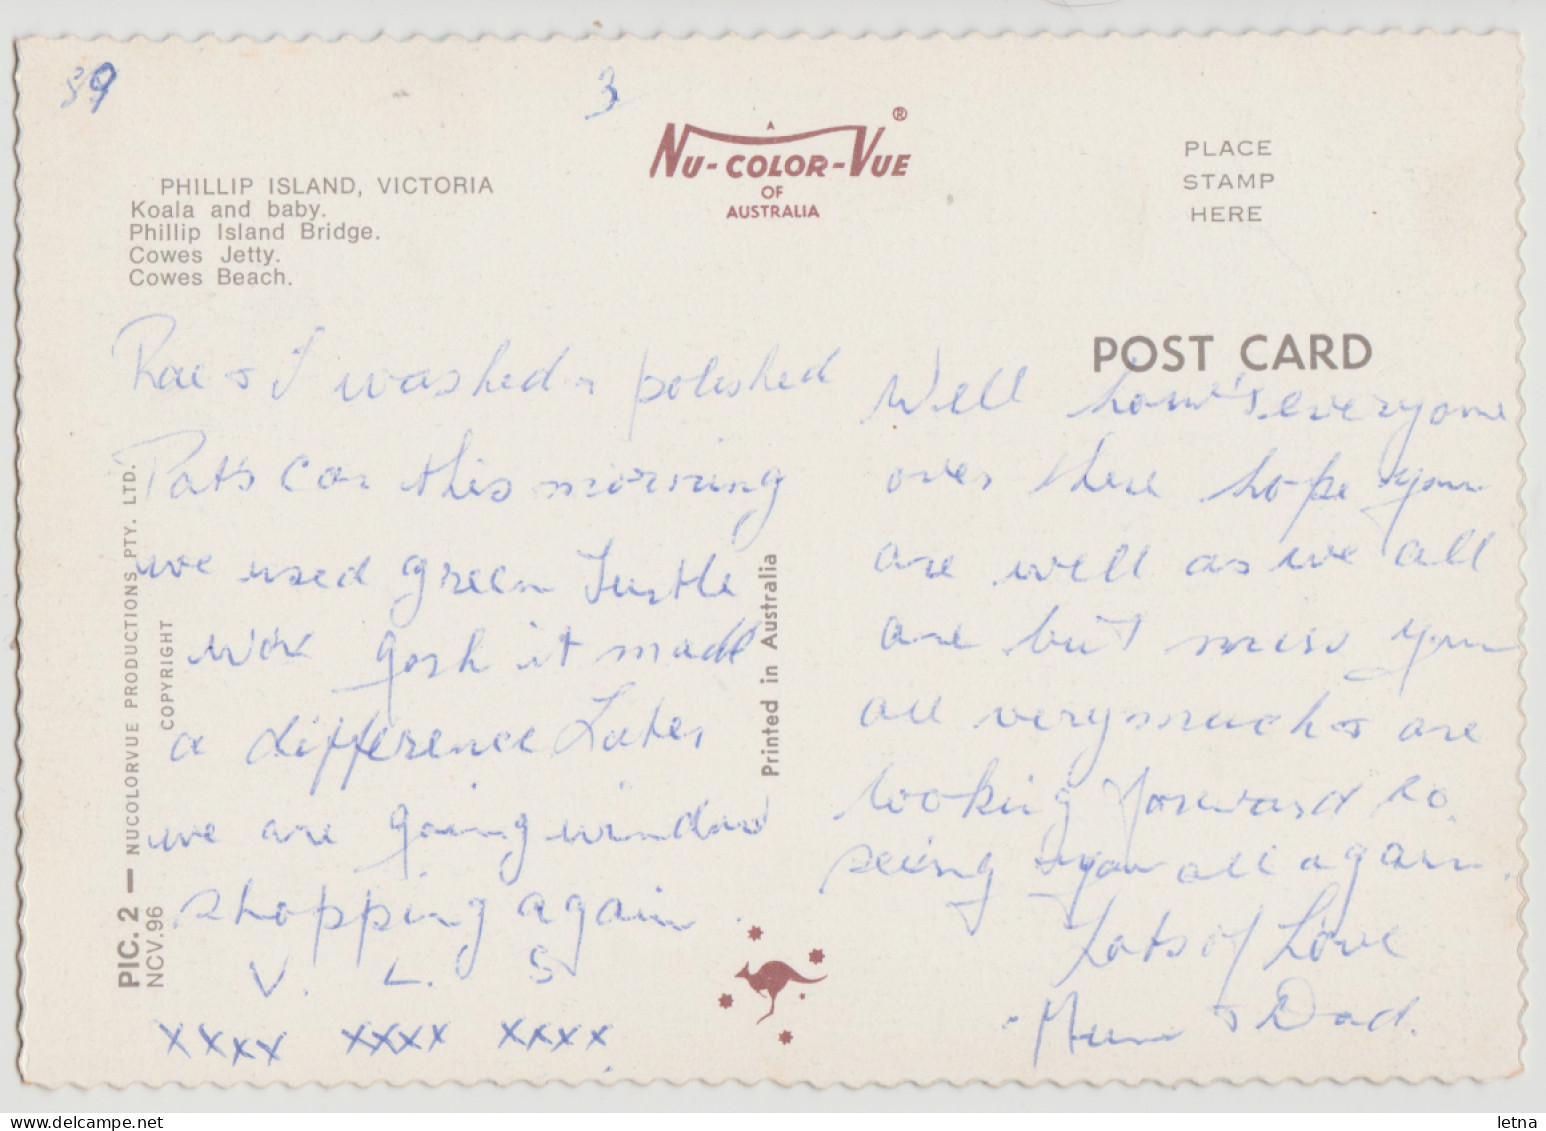 39
3
A
NU-COLOR-VUE®
OF
AUSTRALIA
PLACE
STAMP
HERE
PHILLIP ISLAND, VICTORIA
Koala and baby.
Phillip Island Bridge.
Cowes Jetty.
Cowes Beach.
POST CARD
Rae & I washed & polished
Pat's car this morning
we used green Turtle
wax gosh it made
a difference Later
we are going window
shopping again
V. L. S
xxxx xxxx xxxx.
Well how's everyone
over there hope you
are well as we all
are but miss you
all very much & are
looking forward to
seeing you all again.
Lots of Love
Mum & Dad.
PIC. 2 — NUCOLORVUE PRODUCTIONS PTY. LTD.
NCV.96 COPYRIGHT
Printed in Australia
delcampe.net
letna